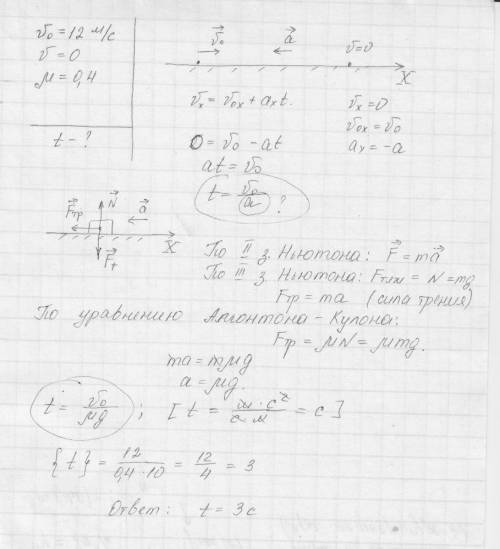 v⃗₀ = 12 м/с
v = 0
μ = 0,4
t - ?
v⃗₀ a⃗ v=0
X
vₓ = v₀ₓ + aₓt. vₓ = 0
0 = v₀ - at v₀ₓ = v₀
at = v₀ aₓ = -a
t = v₀/a ?
N⃗
F⃗тр a⃗
X
F⃗т
По II з. Ньютона: F⃗ = ma⃗
По III з. Ньютона: Fтяж = N = mg
Fтр = ma (сила трения)
По уравнению Амонтона - Кулона:
Fтр = μN = μmg.
ma = mμg
a = μg.
t = v₀/μg ; [ t = м · с²/с · м = с ]
{t} = 12/0,4·10 = 12/4 = 3
Ответ: t = 3 с